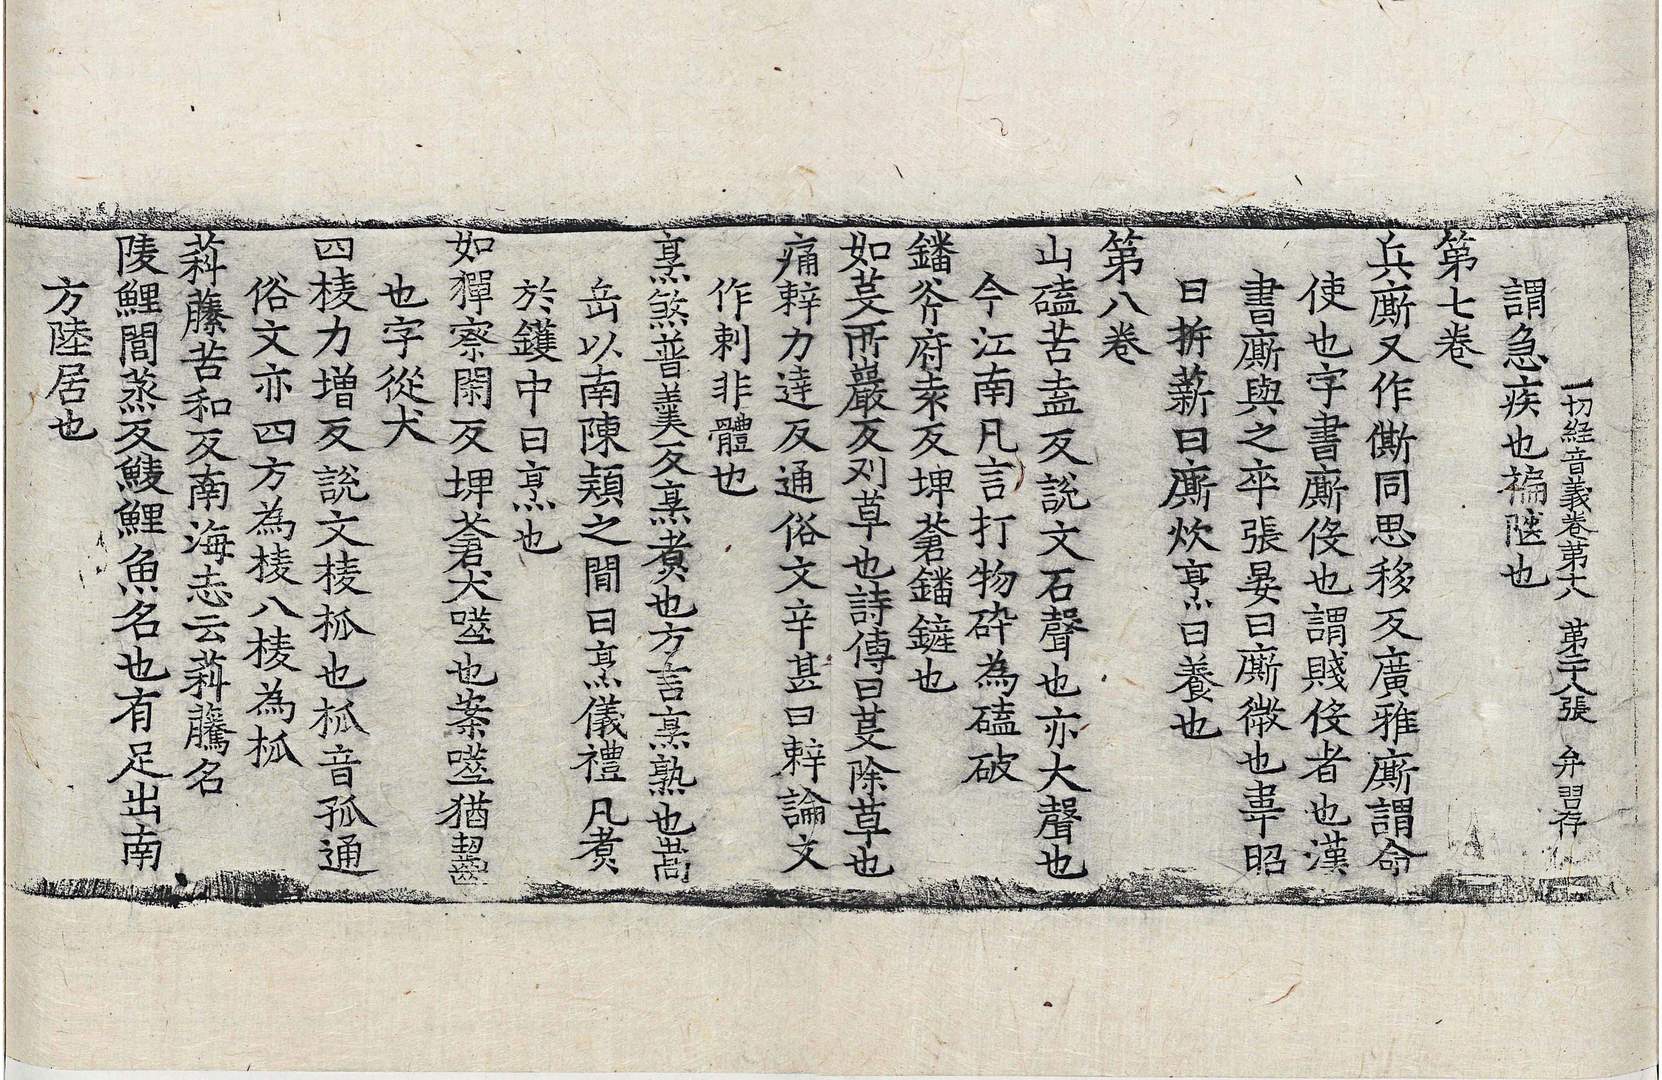 一切経音義卷第十八　第二十八張　弁習存
謂急疾也褊陿也
第七卷
兵廝又作㒋同思移反廣雅廝謂命
使也字書廝伇也謂賤伇者也漢
書廝與之卒張晏曰廝微也韋昭
曰折薪曰廝炊烹曰養也
第八卷
山磕苦盍反說文石聲也亦大聲也
今江南凡言打物碎為磕破
鐇斧府袁反埤蒼鐇鏟也
如芟所嚴反刈草也詩傳曰芟除草也
痛辢力達反通俗文辛甚曰辢論文
作刺非體也
烹煞普羹反烹煮也方言烹熟也嵩
岳以南陳穎之間曰烹儀禮凡煮
於鑊中曰烹也
如獋寮閑反埤蒼犬噬也案噬猶齧
也字從犬
四棱力增反說文棱柧也柧音孤通
俗文亦四方為棱八棱為柧
萪藤苦和反南海志云萪騰名
陵鯉閭蒸反鯪鯉魚名也有足出南
方陸居也